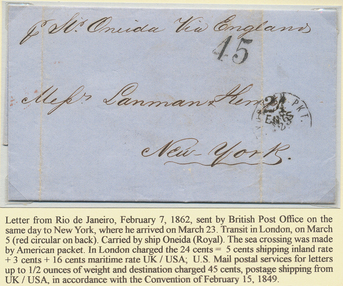 pr Str Oneida Via England
45
PKT.
24
CENTS
Messrs Lanman & Kemp
New-York.
Letter from Rio de Janeiro, February 7, 1862, sent by British Post Office on the
same day to New York, where he arrived on March 23. Transit in London, on March
5 (red circular on back). Carried by ship Oneida (Royal). The sea crossing was made
by American packet. In London charged the 24 cents = 5 cents shipping inland rate
+ 3 cents + 16 cents maritime rate UK / USA; U.S. Mail postal services for letters
up to 1/2 ounces of weight and destination charged 45 cents, postage shipping from
UK / USA, in accordance with the Convention of February 15, 1849.